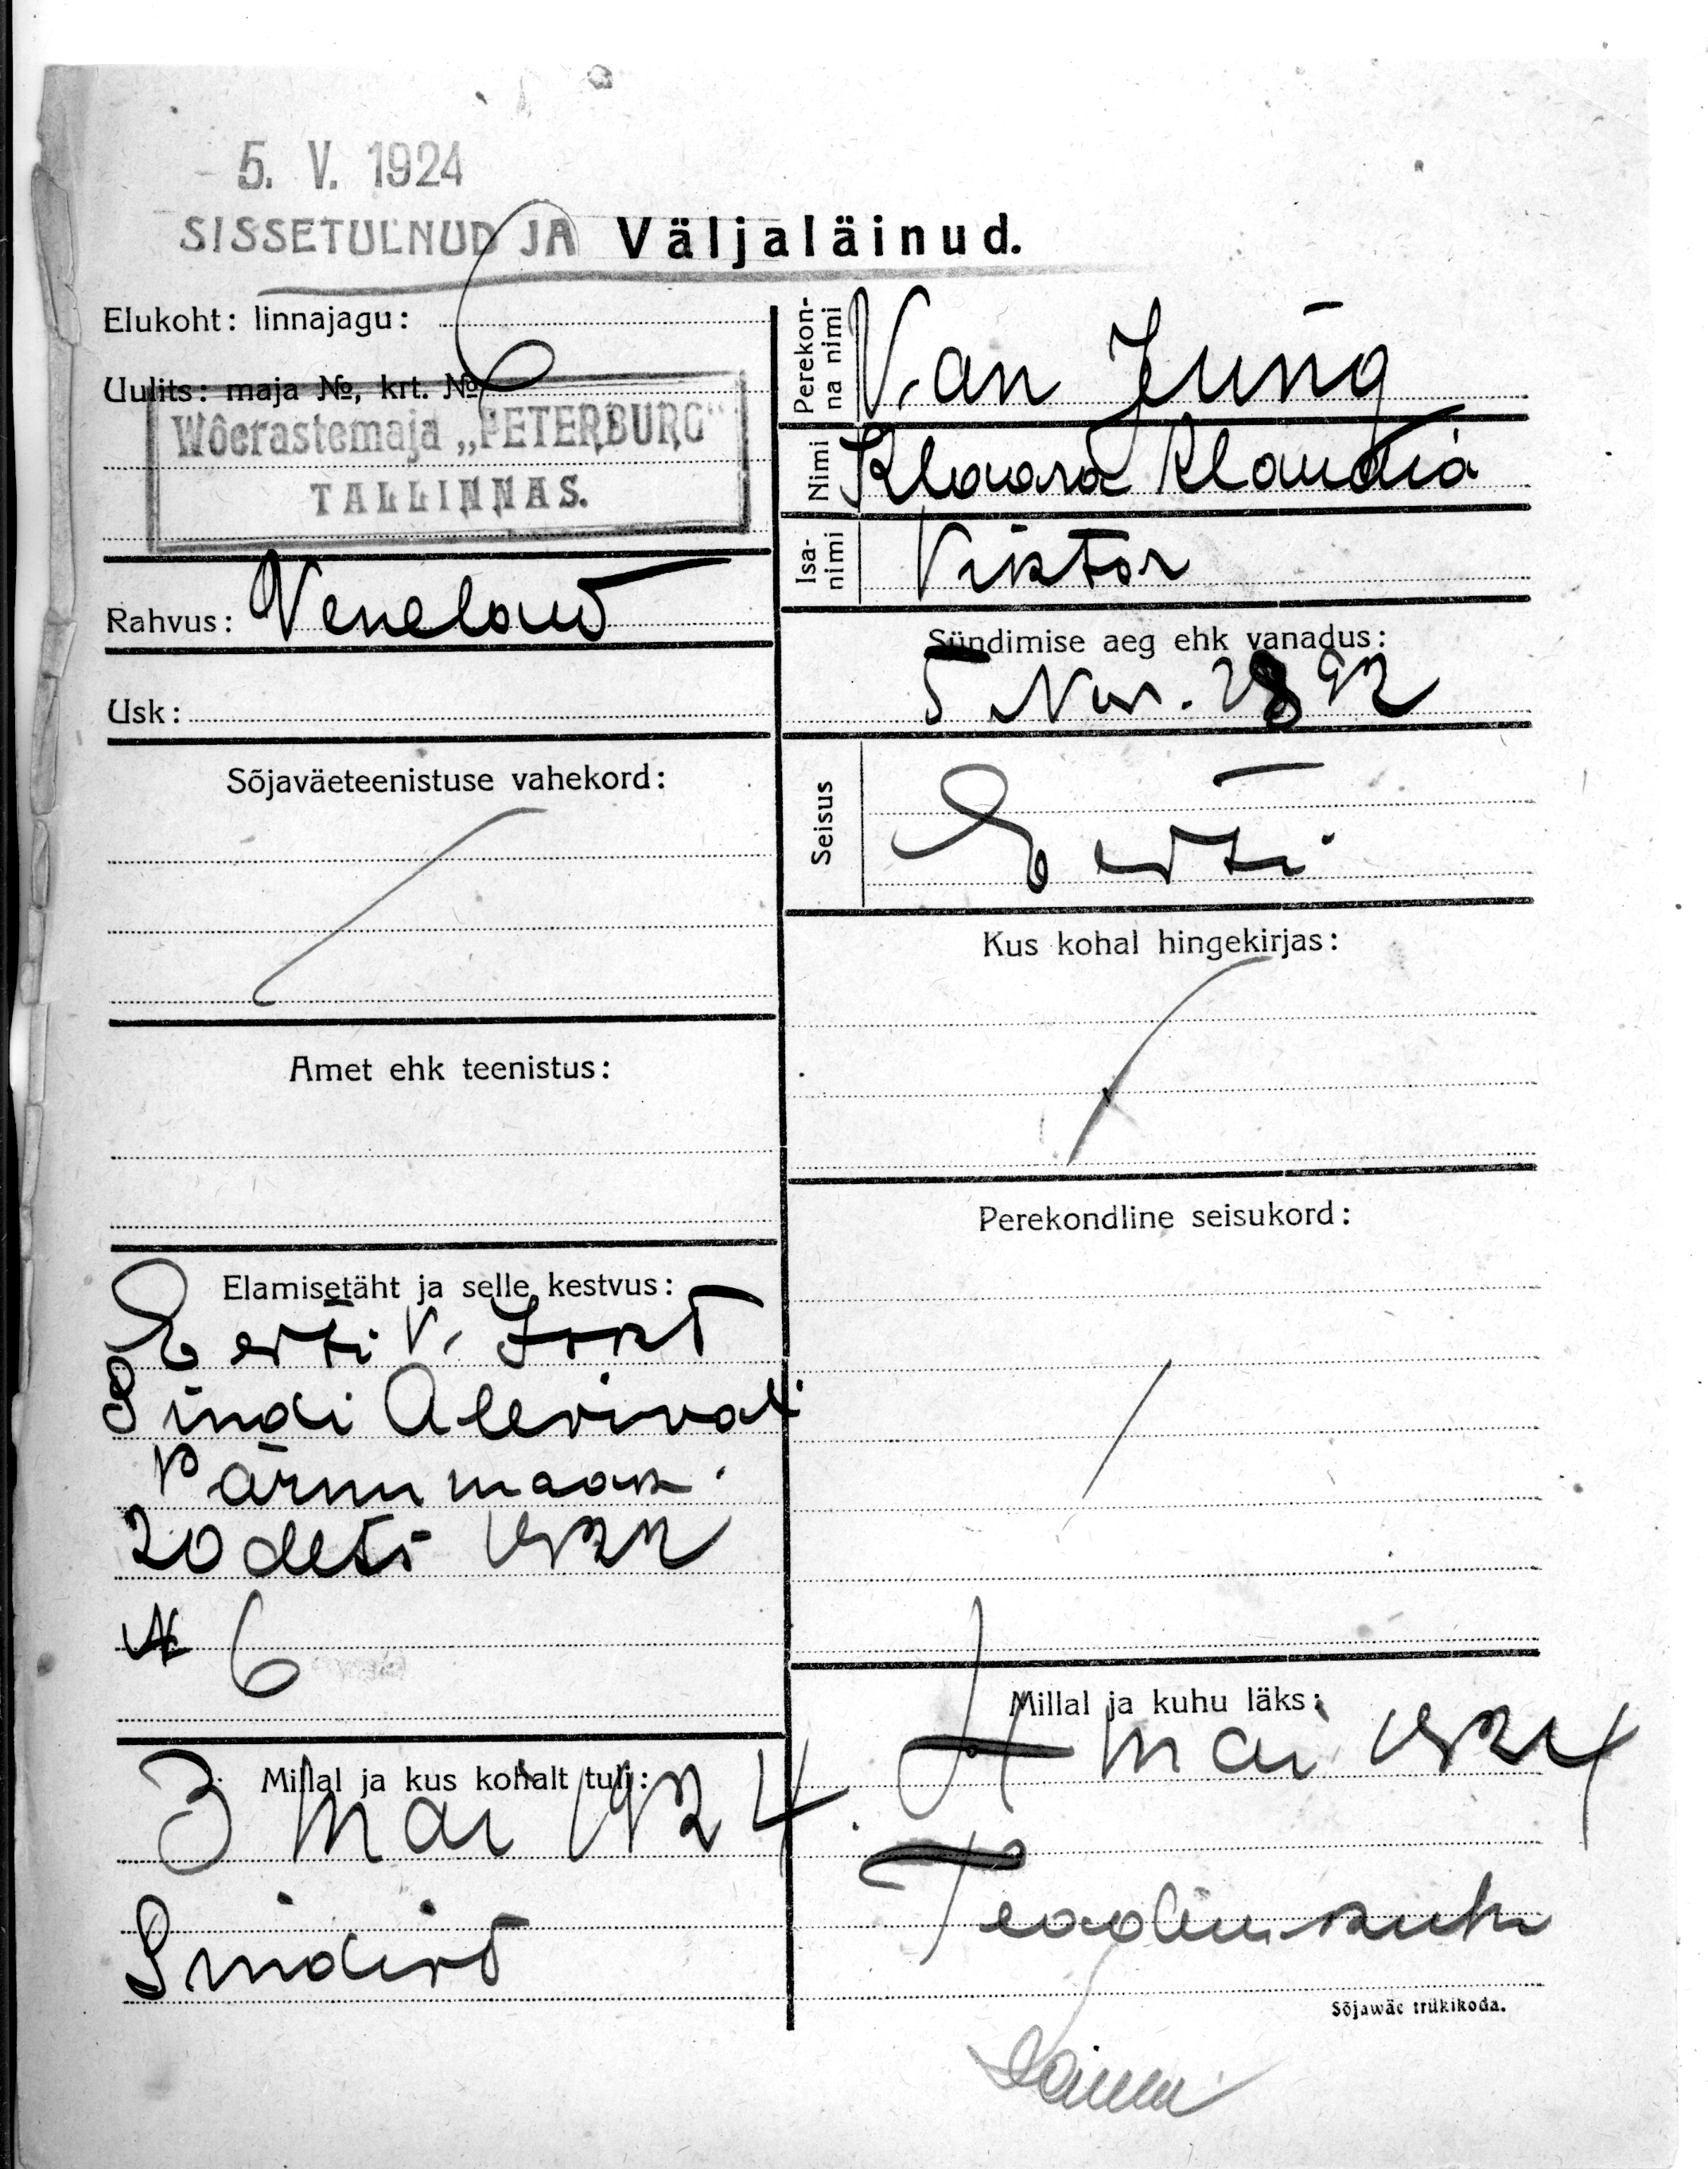 5. V. 1924
SISSETULNUD JA Väljaläinud.
Elukoht: linnajagu:
6
Uulits: maja №, krt. №
Wõerastemaja „PETERBURG"
TALLINNAS.
Rahvus: Venelane
Usk:
Sõjaväeteenistuse vahekord:
Amet ehk teenistus:
Elamisetäht ja selle kestvus:
Eesti V.
Sindi Alevival.
Pärnumaak.
20 dets 1922
N 6
Millal ja kus kohalt tuli:
3 Mai 1924.
Sindist
Perekonna nimi
Van Jung
Nimi
Klaara Klaudia
Isanimi
Viktor
Sündimise aeg ehk vanadus:
5 Nov. 1892
Seisus
Eesti
Kus kohal hingekirjas:
Perekondline seisukord:
Millal ja kuhu läks:
4 Mai 1924
Sõjawäe trükikoda.